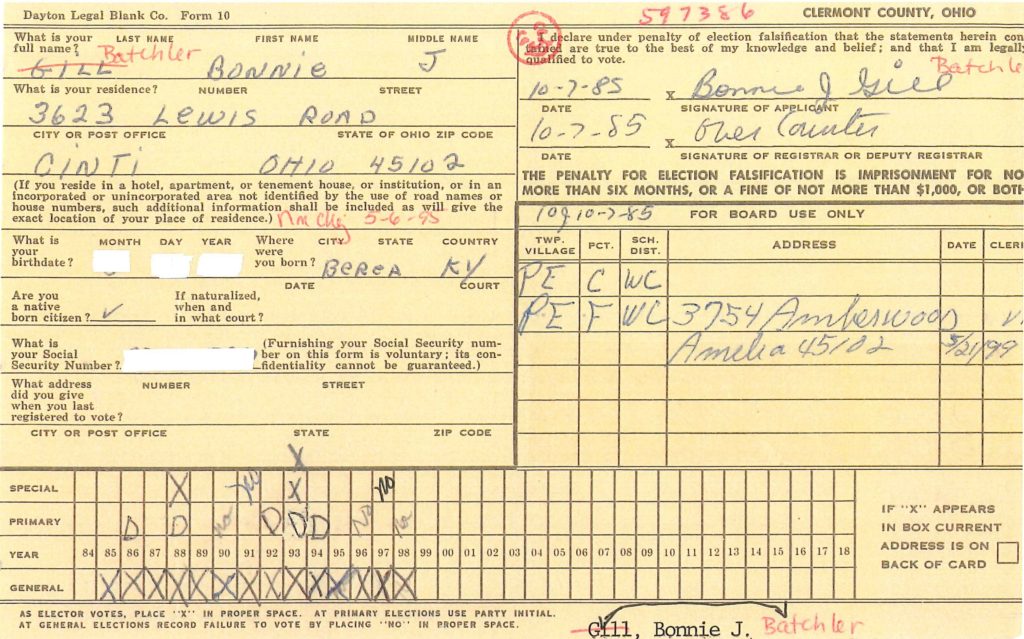 Dayton Legal Blank Co. Form 10
597386
CLERMONT COUNTY, OHIO
What is your full name?
LAST NAME FIRST NAME MIDDLE NAME
GILL Batchler BONNIE J
What is your residence? NUMBER STREET
3623 LEWIS ROAD
CITY OR POST OFFICE STATE OF OHIO ZIP CODE
CINTI OHIO 45102
(If you reside in a hotel, apartment, or tenement house, or institution, or in an
incorporated or unincorporated area not identified by the use of road names or
house numbers, such additional information shall be included as will give the
exact location of your place of residence.) Nm Chg 5-6-95
What is your birthdate? MONTH DAY YEAR
Where were you born? CITY STATE COUNTRY
BEREA KY
Are you a native born citizen? ✓
If naturalized, when and in what court? DATE COURT
What is your Social Security Number?
(Furnishing your Social Security num-
ber on this form is voluntary; its con-
fidentiality cannot be guaranteed.)
What address did you give when you last registered to vote? NUMBER STREET
CITY OR POST OFFICE STATE ZIP CODE
I declare under penalty of election falsification that the statements herein con
tained are true to the best of my knowledge and belief; and that I am legally
qualified to vote.
Batchler
10-7-85 x Bonnie J Gill
DATE SIGNATURE OF APPLICANT
10-7-85 x Over Counter
DATE SIGNATURE OF REGISTRAR OR DEPUTY REGISTRAR
THE PENALTY FOR ELECTION FALSIFICATION IS IMPRISONMENT FOR NO
MORE THAN SIX MONTHS, OR A FINE OF NOT MORE THAN $1,000, OR BOTH
10-7-85 FOR BOARD USE ONLY
TWP. VILLAGE PCT. SCH. DIST. ADDRESS DATE CLER
PE C WC
PE F WC 3754 Amberwood
Amelia 45102 5/21/99
X
SPECIAL X yes X no
PRIMARY D D no D D D no no
YEAR 84 85 86 87 88 89 90 91 92 93 94 95 96 97 98 99 00 01 02 03 04 05 06 07 08 09 10 11 12 13 14 15 16 17 18
GENERAL X X X X X X X X X X X X X X
IF "X" APPEARS
IN BOX CURRENT
ADDRESS IS ON
BACK OF CARD
AS ELECTOR VOTES, PLACE "X" IN PROPER SPACE. AT PRIMARY ELECTIONS USE PARTY INITIAL.
AT GENERAL ELECTIONS RECORD FAILURE TO VOTE BY PLACING "NO" IN PROPER SPACE.
Gill, Bonnie J. Batchler